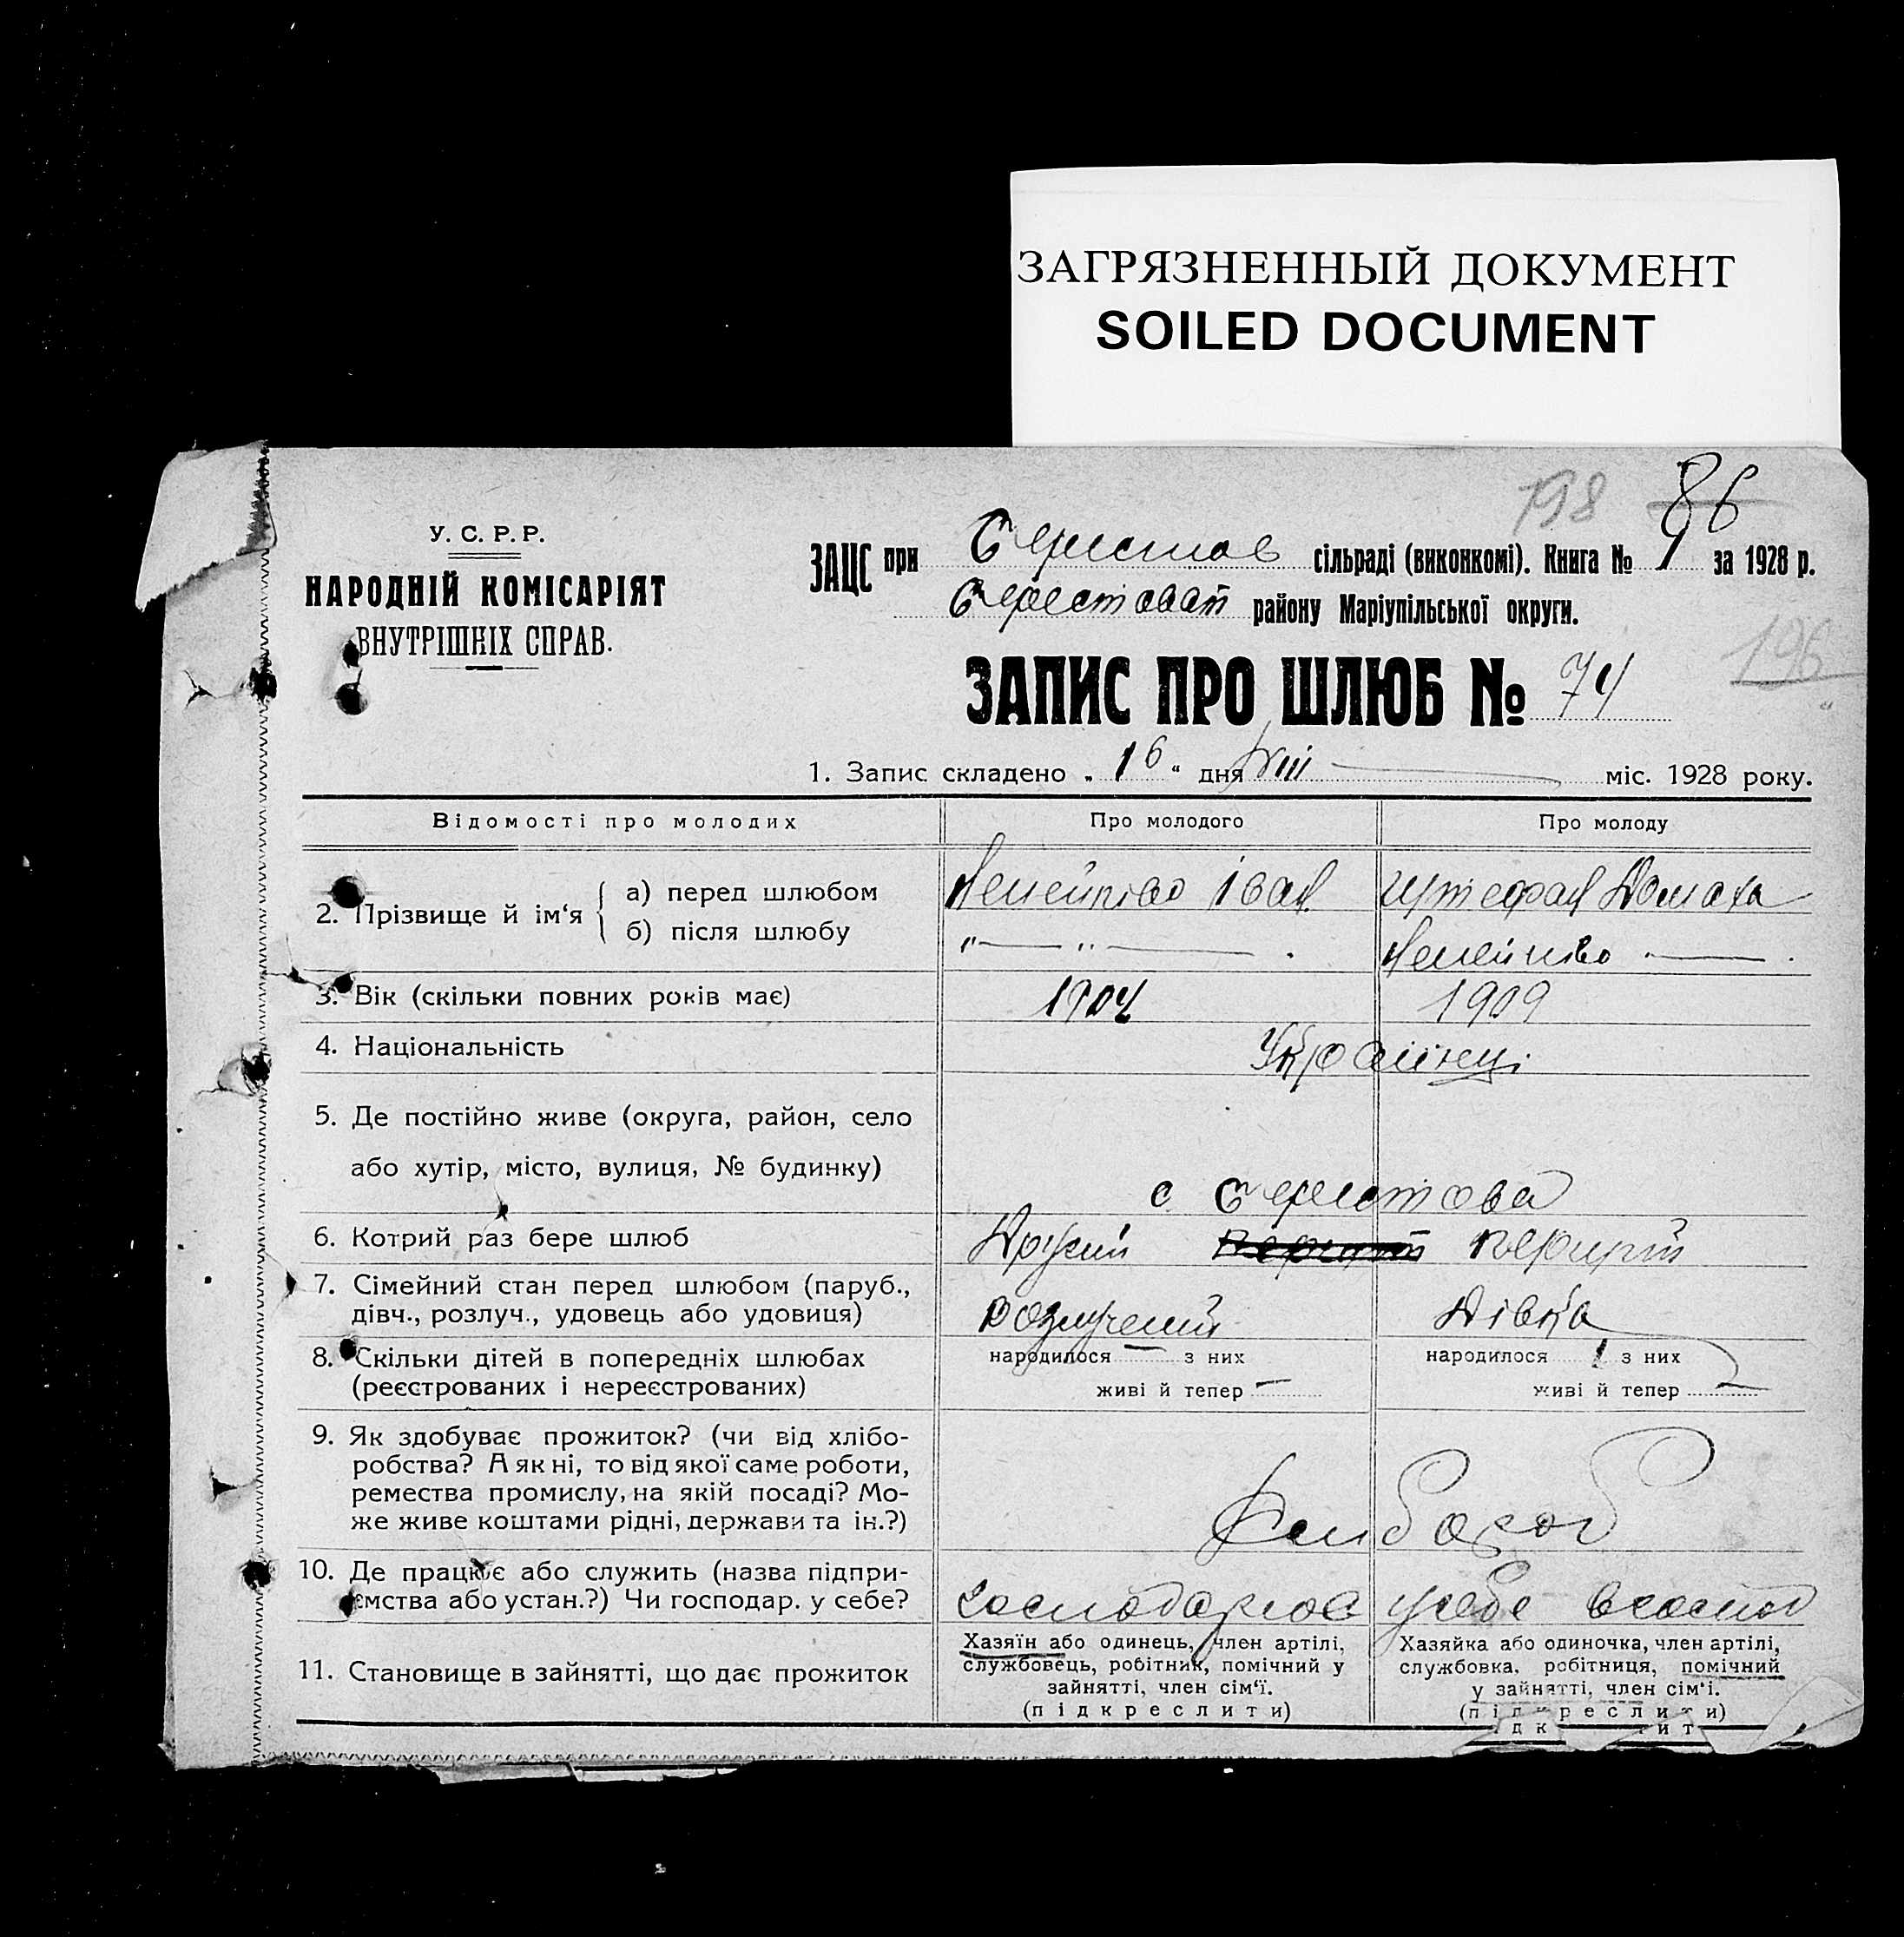 ЗАГРЯЗНЕННЫЙ ДОКУМЕНТ
SOILED DOCUMENT
198 86
У. С. Р. Р.
НАРОДНІЙ КОМІСАРІЯТ
ВНУТРІШНІХ СПРАВ.
ЗАЦС при Берестов сільраді (виконкомі). Книга № 1 за 1928 р.
Берестоват району Маріупільської округи.
196
ЗАПИС ПРО ШЛЮБ № 74
1. Запис складено „ 16 “ дня VIII міс. 1928 року.
Відомості про молодих Про молодого Про молоду
2. Прізвище й ім‘я { а) перед шлюбом Іван Домаха
б) після шлюбу " — " —
3. Вік (скільки повних років має) 1904 1909
4. Національність Українці
5. Де постійно живе (округа, район, село
або хутір, місто, вулиця, № будинку)
с Берестова
6. Котрий раз бере шлюб Другий перший
7. Сімейний стан перед шлюбом (паруб.,
дівч., розлуч., удовець або удовиця) Розлучений Дівка
8. Скільки дітей в попередніх шлюбах народилося — з них народилося 1 з них
(реєстрованих і нереєстрованих) живі й тепер — живі й тепер
9. Як здобуває прожиток? (чи від хлібо-
робства? А як ні, то від якої саме роботи,
ремества промислу, на якій посаді? Мо-
же живе коштами рідні, держави та ін.?)
Хлібороб
10. Де працює або служить (назва підпри-
ємства або устан.?) Чи господар. у себе? господарює у себе
11. Становище в зайнятті, що дає прожиток
Хазяїн або одинець, член артілі,
службовець, робітник, помічний у
зайнятті, член сім‘ї.
(підкреслити)
Хазяйка або одиночка, член артілі,
службовка, робітниця, помічний
у зайнятті, член сім‘і.
(підкреслити)